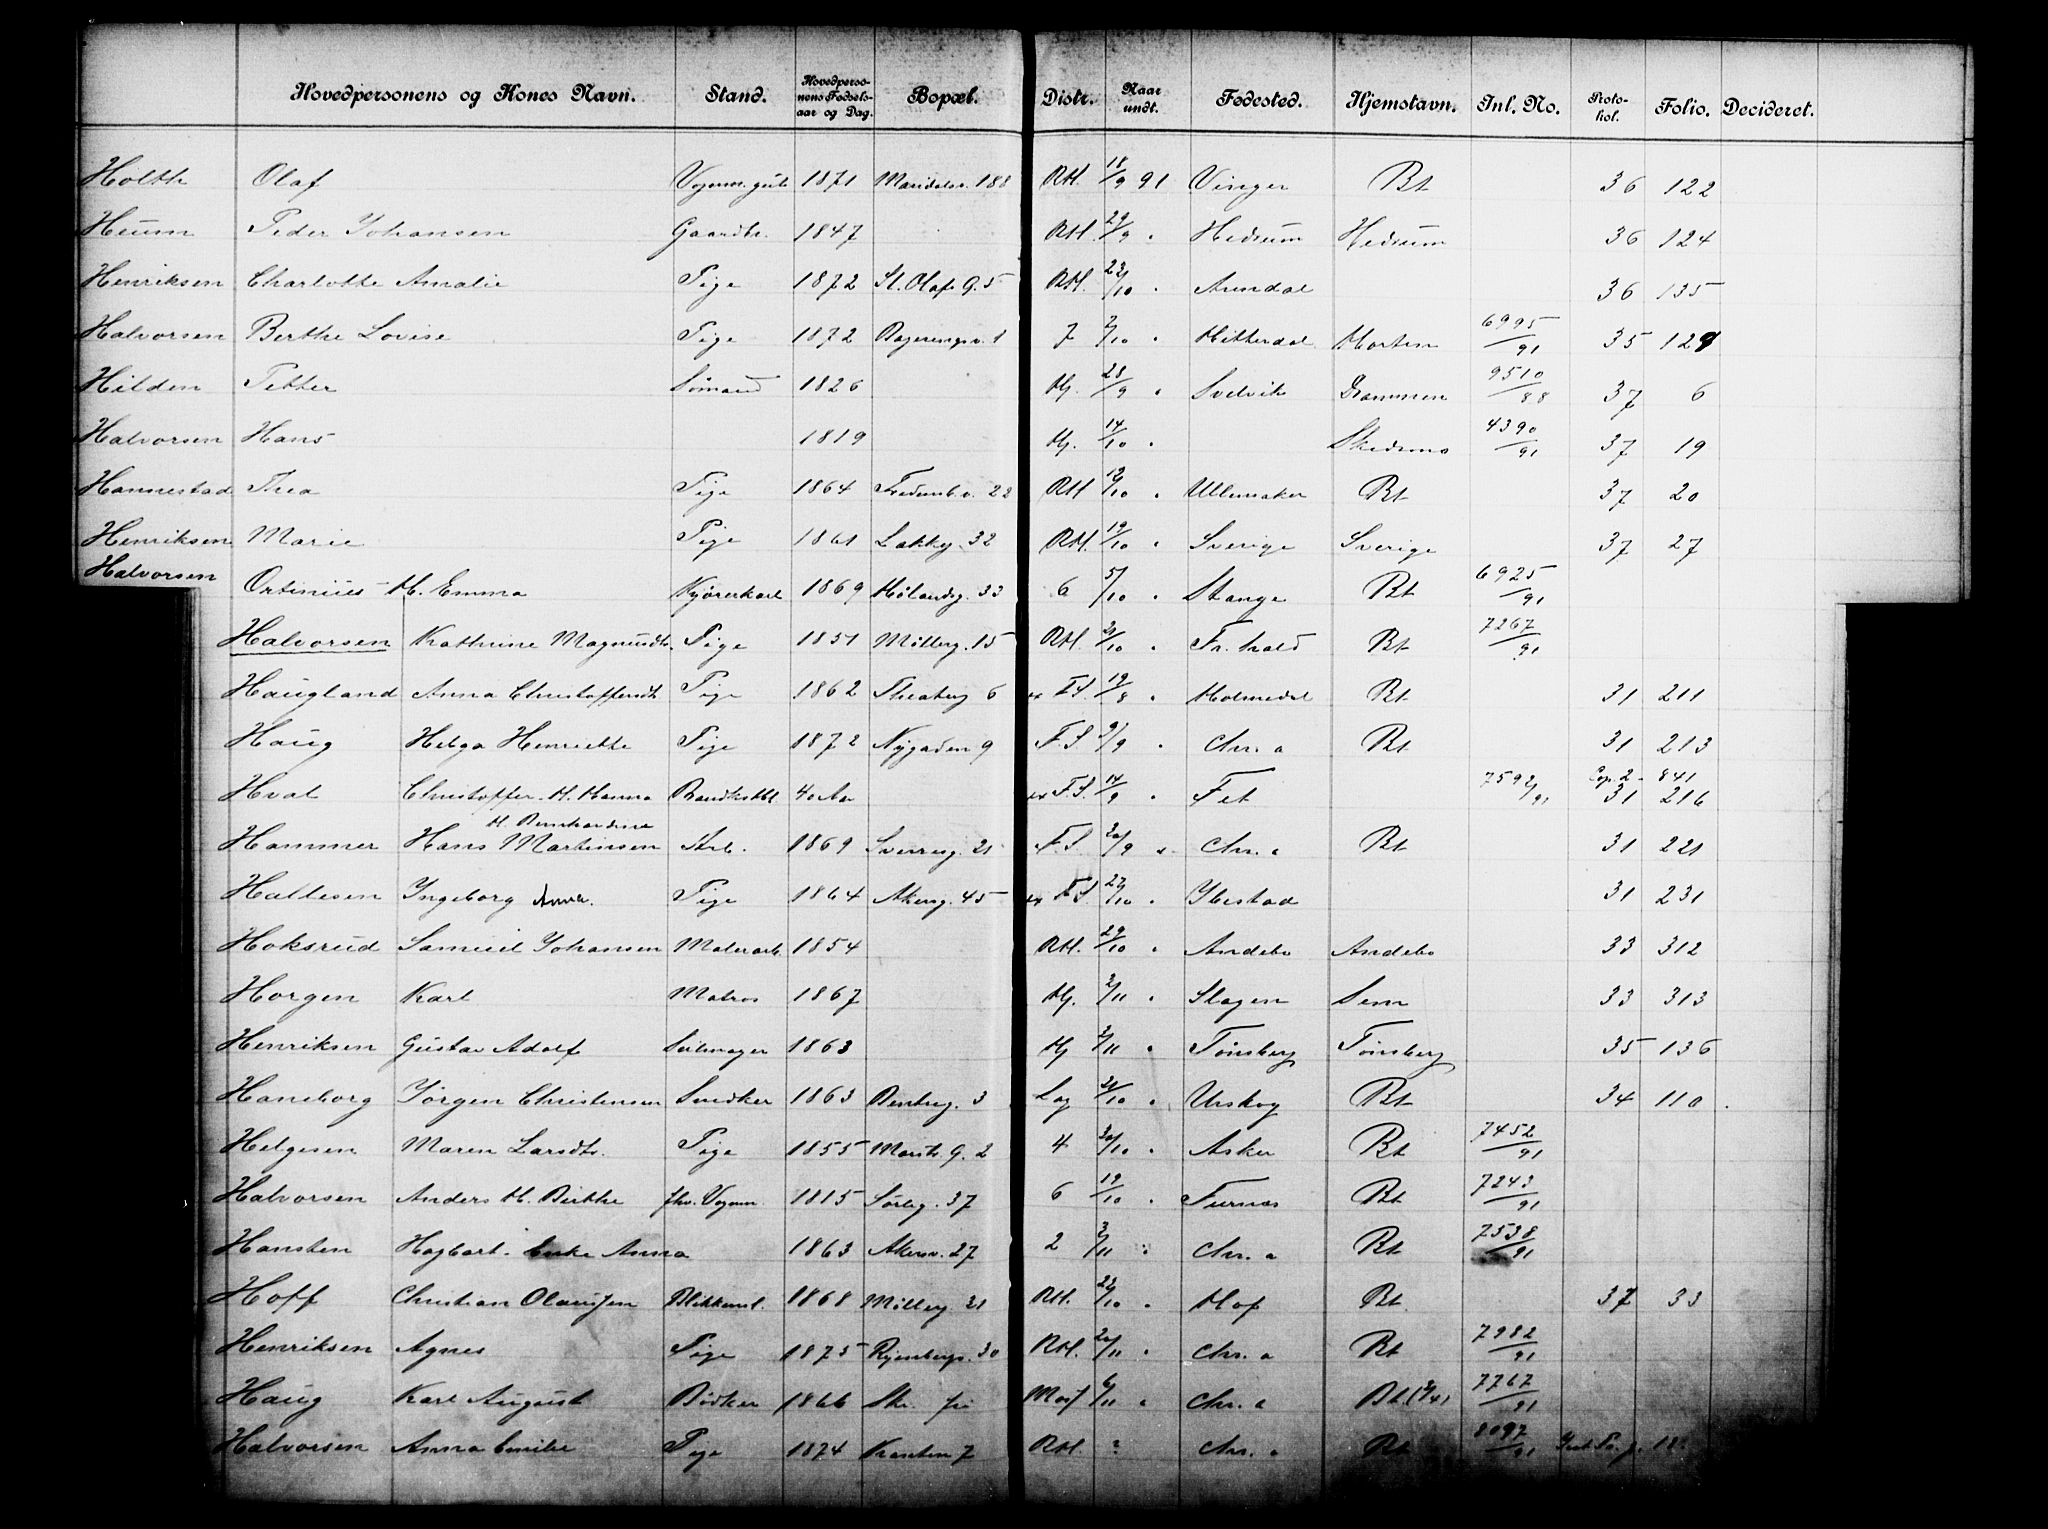 Hovedpersonens og Kones Navn. Stand. Hovedpersonens Fødselsaar og Dag. Bopæl. Distr. Naar undt. Fødested. Hjemstavn. Inl. No. Protokol. Folio. Decideret.
Holth Olaf Vognm. gut 1871 Maridalsv. 188 RH. 18/9 91 Vinger Bt 36 122
Heum Peder Johansen Gaardbr. 1847 RH. 29/9 " Hedrum Hedrum 36 124
Henriksen Charlotte Amalie Pige 1872 St. Olafs G. 5 RH. 23/10 " Arendal 36 135
Halvorsen Berthe Lovise Pige 1872 1 7 2/10 " Hitterdal Horten 6995/91 35 129
Hilden Petter Sømand 1826 Hj. 28/9 " Svelvik Drammen 9510/88 37 6
Halvorsen Hans 1819 Hj. 14/10 " Skedsmo 4390/91 37 19
Hannestad Thea Pige 1864 Fredensb.v. 22 RH /10 " Ullensaker Bt 37 20
Henriksen Marie Pige 1861 Lakkeg. 32 RH. 19/10 " Sverige Sverige 37 27
Halvorsen Ortinius H. Emma Kjørerkarl 1869 Hølandsg. 33 6 5/10 " Stange Bt 6925/91
Halvorsen Kathrine Magnusdtr. Pige 1851 Møllerg. 15 RH. 21/10 " Fr.hald Bt 7267/91
Haugland Anna Christoffersdt. Pige 1862 Theaterg 6 F.S. 19/8 " Holmedal Bt 31 211
Haug Helga Henriette Pige 1872 Nygaden 9 F.S 9/9 " Chr.a Bt 31 213
Hval Christoffer H. Hanna 40 Aar F.S. 14/9 " Fet 7592/91 Cop. 2 - 841
31 216
H. Bernhardine
Hammer Hans Martinsen Arb. 1869 Sverresg. 21 F.S 20/9 " Chr.a Bt 31 221
Hallesen Ingeborg Anna. Pige 1864 Akersg. 45 F.S. 27/10 " Ibestad 31 231
Hoksrud Samuel Johansen Malerarb. 1854 RH. 29/10 " Andebo Andebo 33 312
Horgen Karl Matros 1867 Hj. 2/11 " Slagen Sem 33 313
Henriksen Gustav Adolf Seilmager 1863 Hj 2/11 " Tønsberg Tønsberg 35 136
Haneborg Jørgen Christensen Snedker 1863 3 Lag 21/10 " Urskog Bt 34 110
Helgesen Maren Larsdtr. Pige 1855 G. 2 4 20/10 " Asker Bt 7452/91
Halvorsen Anders H. Berthe fhv. Vognm. 1815 Sørlig. 37 6 19/10 " Furnes Bt 7243/91
Hansten Hagbart. Enke Anna 1863 Akersv. 27 2 3/11 " Chr.a Bt 7538/91
Hoff Christian Olaussen Blikkensl. 1868 Møllerg 21 RH. 22/10 " Hof Bt 37 33
Henriksen Agnes Pige 1875 Ryenbergv. 30 RH. 20/11 " Chr.a Bt 7982/91
Haug Karl August Bødker 1866 6/11 " Chr.a Bt 7767/91
Halvorsen Anna Emilie Pige 1874 Karsten 7 RH. ? Chr.a Bt 8097/91